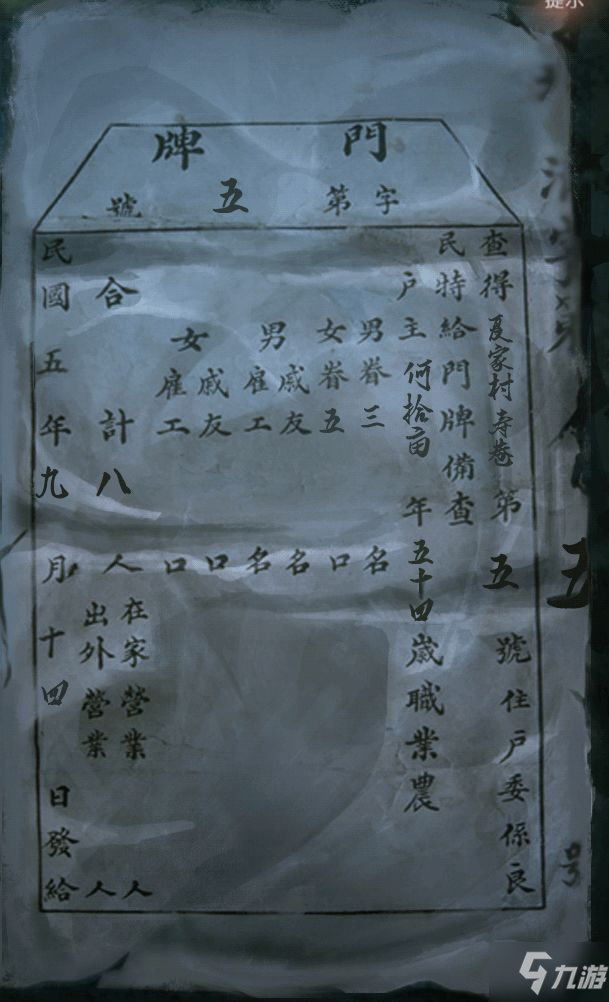 提示
門牌
字第五號
查得夏家村寺巷第五號住戶委係良
民特給門牌備查
戶主何拾亩年五十四歲職業農
男眷三名
女眷五口
男戚友名
雇工名
女戚友口
雇工口
合計八人在家營業人
出外營業人
民國五年九月十四日發給
五
号
九游